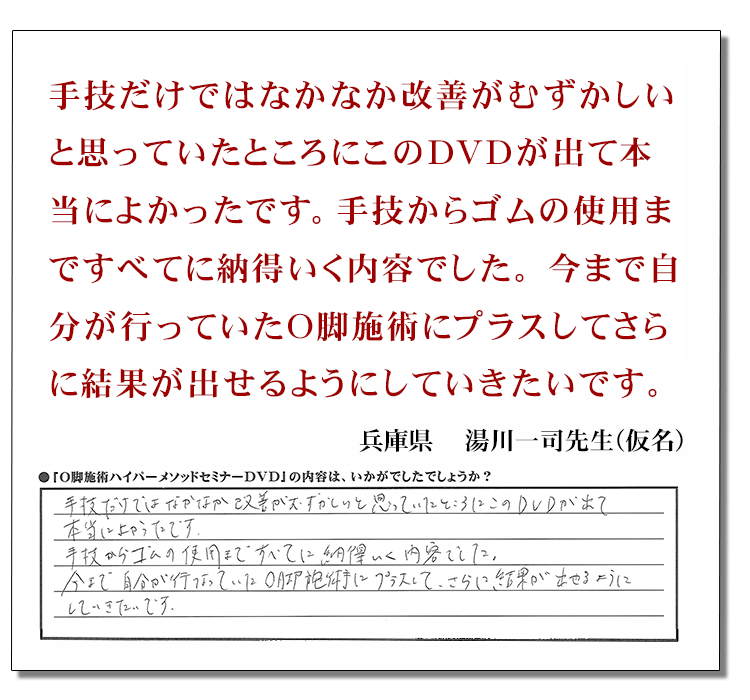 手技だけではなかなか改善がむずかしい
と思っていたところにこのDVDが出て本
当によかったです。手技からゴムの使用ま
ですべてに納得いく内容でした。今まで自
分が行っていたO脚施術にプラスしてさら
に結果が出せるようにしていきたいです。
兵庫県 湯川一司先生(仮名)
●『O脚施術ハイパーメソッドセミナーDVD』の内容は、いかがでしたでしょうか？
手技だけではなかなか改善がむずかしいと思っていたところにこのDVDが出て
本当によかったです。
手技からゴムの使用まですべてに納得いく内容でした。
今まで自分が行なっていたO脚施術にプラスして、さらに結果が出せるように
していきたいです。